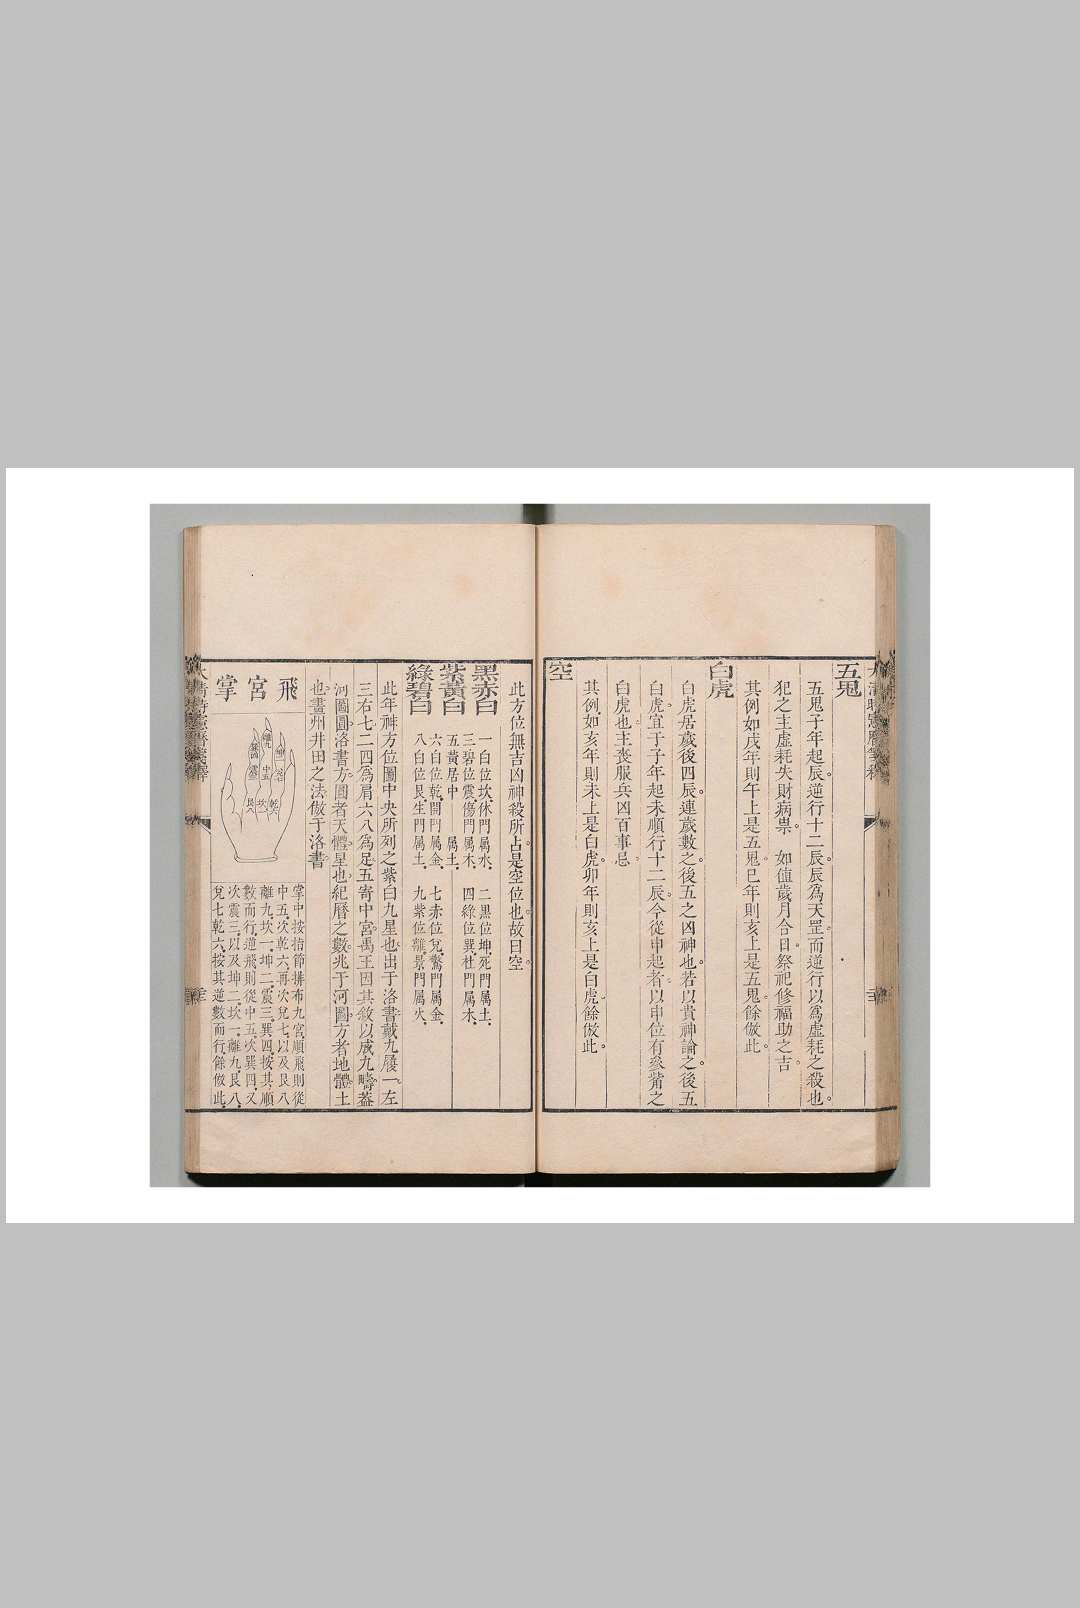 五鬼
五鬼子年起辰逆行十二辰辰為天罡而逆行以為虛耗之殺也
犯之主虛耗失財病祟 如值歲月合日祭祀修福助之吉
其例如戌年則午上是五鬼巳年則亥上是五鬼餘倣此
白虎
白虎居歲後四辰連歲數之後五之凶神也若以貴神論之後五
白虎宜于子年起未順行十二辰今從申起者以申位有參觜之
白虎也主喪服兵凶百事忌
其例如亥年則未上是白虎卯年則亥上是白虎餘倣此
空
此方位無吉凶神殺所占是空位也故曰空
黑赤白
紫黃白
綠碧白
一白位坎休門属水 二黑位坤死門属土
三碧位震傷門属木 四綠位巽杜門属木
五黃居中 属土
六白位乾開門属金 七赤位兌驚門属金
八白位艮生門属土 九紫位離景門属火
此年神方位圖中央所列之紫白九星也出于洛書戴九履一左
三右七二四為肩六八為足五寄中宮禹王因其敘以成九疇蓋
河圖圓洛書方圓者天體星也紀曆之數兆于河圖方者地體土
也畫州井田之法倣于洛書
飛宮掌
離九
坤二
巽四
中五
震三
兌七
乾六
坎一
艮八
掌中按指節排布九宮順飛則從
中五次乾六再次兌七以及艮八
離九坎一坤二震三巽四按其順
數而行逆飛則從中五次巽四又
次震三以及坤二坎一離九艮八
兌七乾六按其逆數而行餘倣此